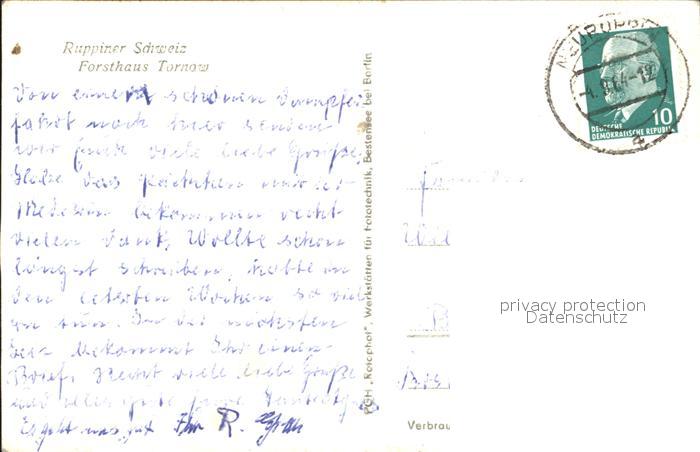 Ruppiner Schweiz
Forsthaus Tornow
Von einer schönen Dampfer
fahrt nach hier senden
wir Euch viele liebe Grüße.
Habe das Päckchen
Medezin bekommen recht
vielen Dank, Wollte schon
längst schreiben, hatte in
den letzten Wochen so viel
zu tun. In der nächsten
Zeit bekommt Ihr einen
Brief. Recht viele liebe Grüße
und alles gute
Es geht uns gut Ihr R.
PGH „Rotophot", Werkstätten für Fototechnik, Bestensee bei Berlin
NEURUPPI
10
DEUTSCHE
DEMOKRATISCHE REPUBLIK
Familie
privacy protection
Datenschutz
Verbrau